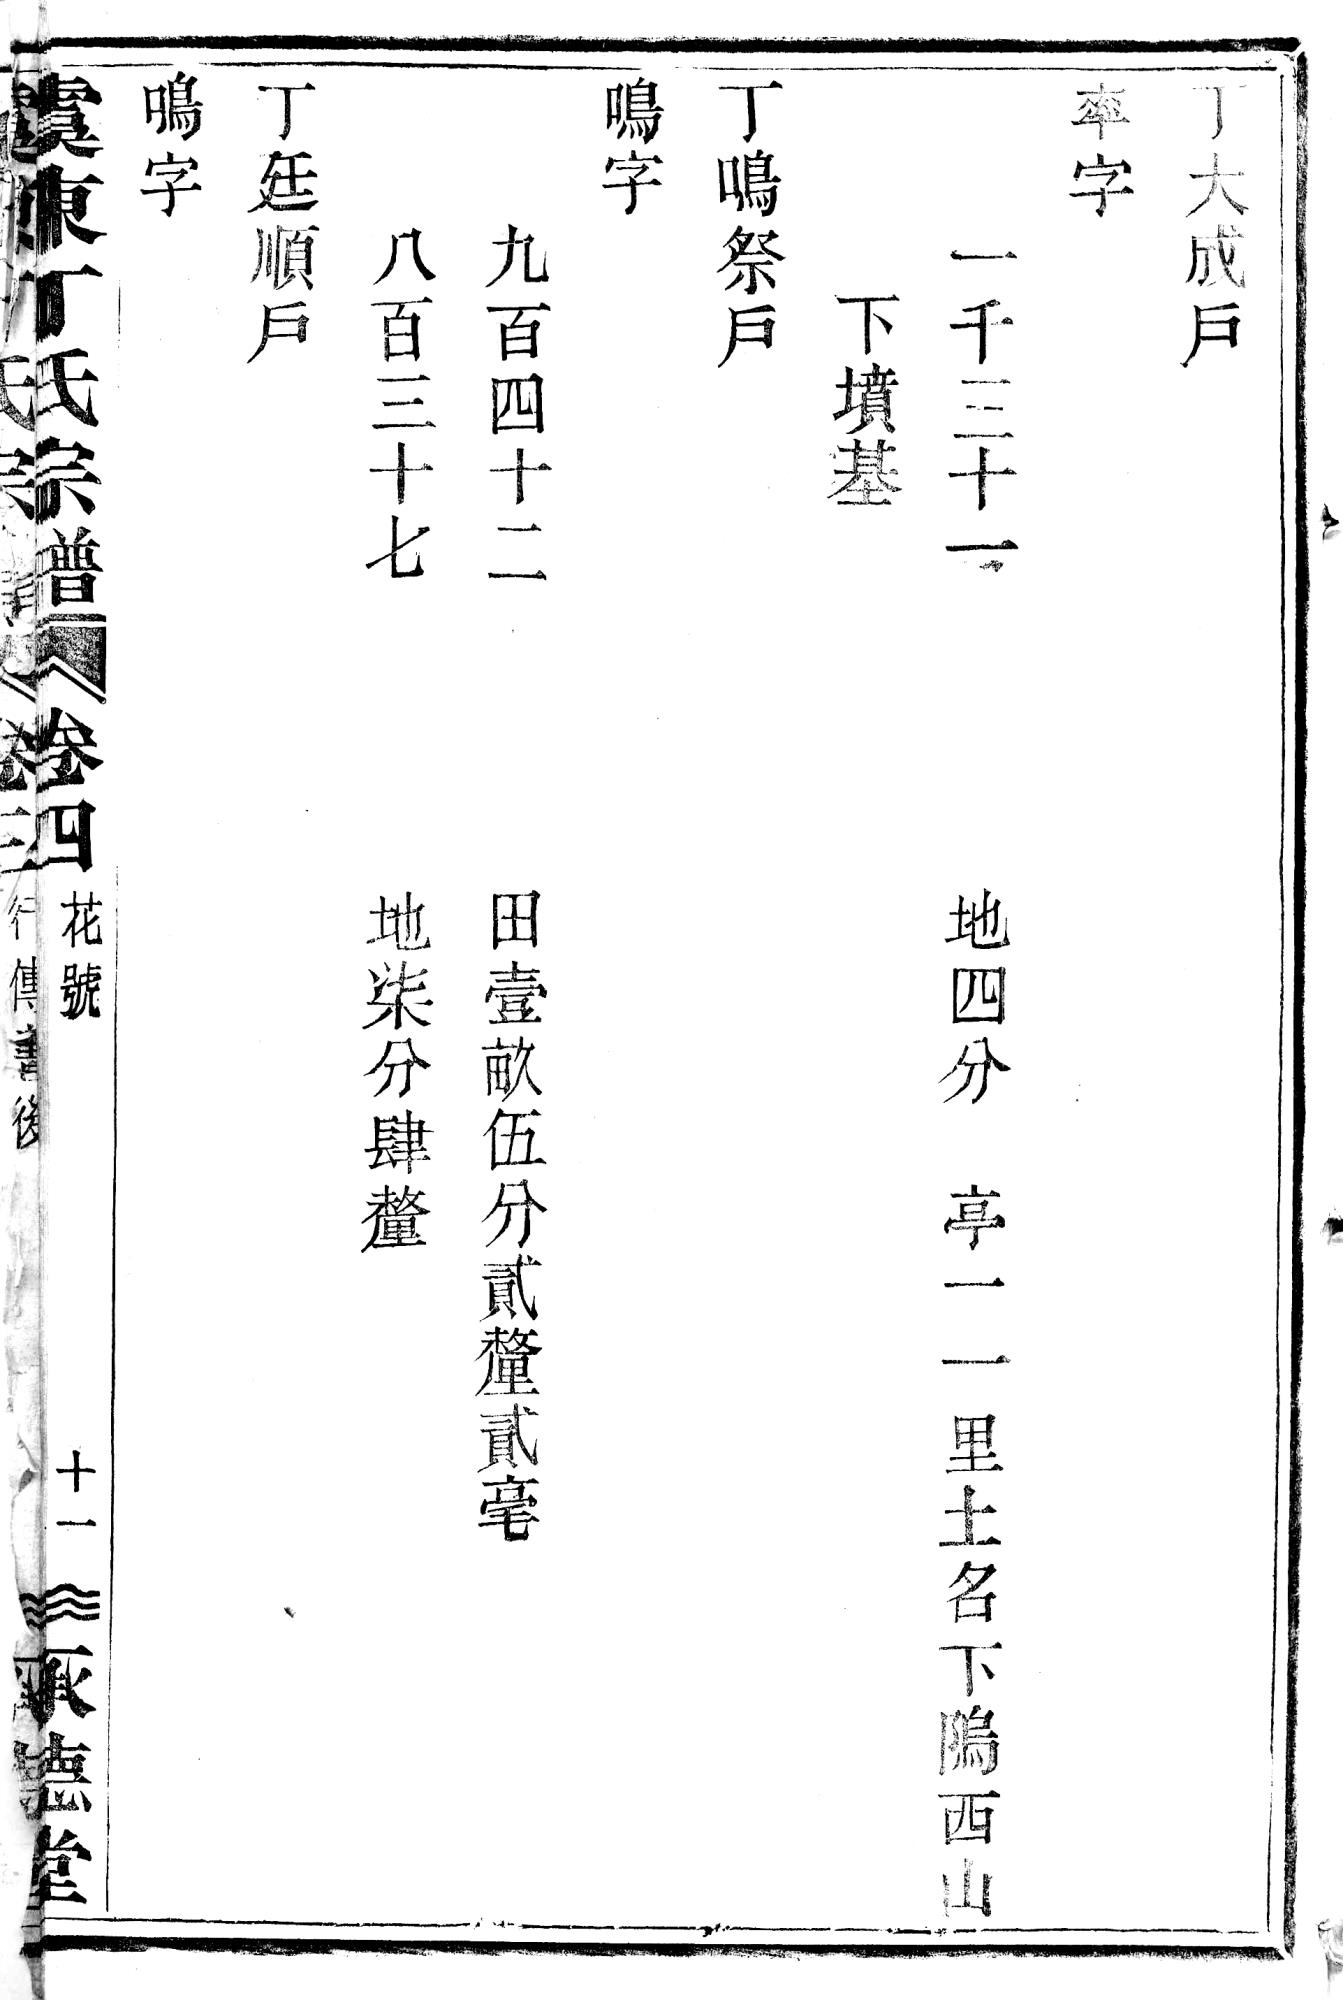 丁大成戶
率字
一千三十一　地四分　亭一一里土名下隖西山
下墳基
丁鳴祭戶
鳴字
九百四十二　田壹畝伍分貳釐貳毫
八百三十七　地柒分肆釐
丁廷順戶
鳴字
虞東丁氏宗譜　卷四　花號　十一　承德堂
行傳書後